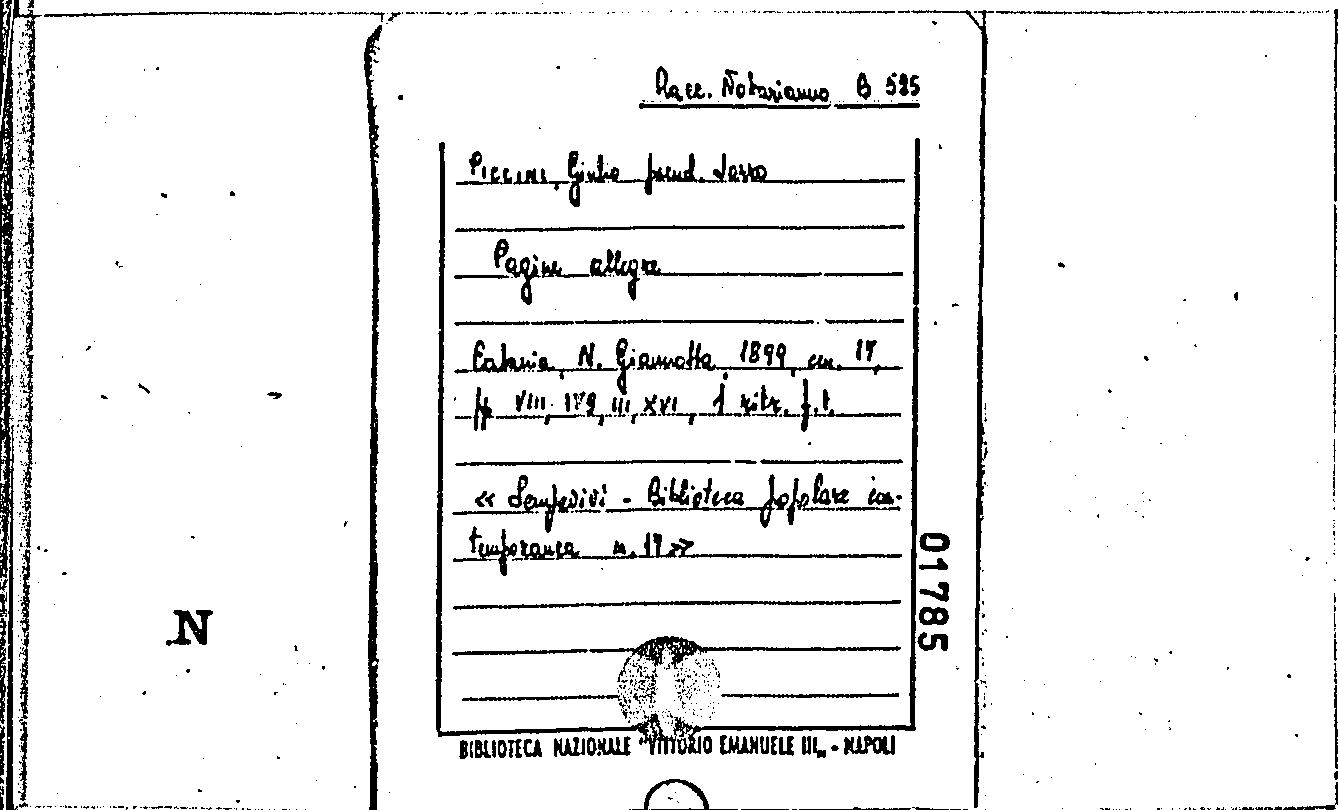 Racc. Notarianno B 525
PICCINI, Giulio pseud. Jarro
Pagine allegre
Catania, N. Giannotta, 1899, cm. 17,
pp VIII, 179, III, XVI, 1 ritr. f.t.
« Sempevivi - Biblioteca popolare con-
temporanea n. 17 »
01785
N
BIBLIOTECA NAZIONALE "VITTORIO EMANUELE III„ - NAPOLI